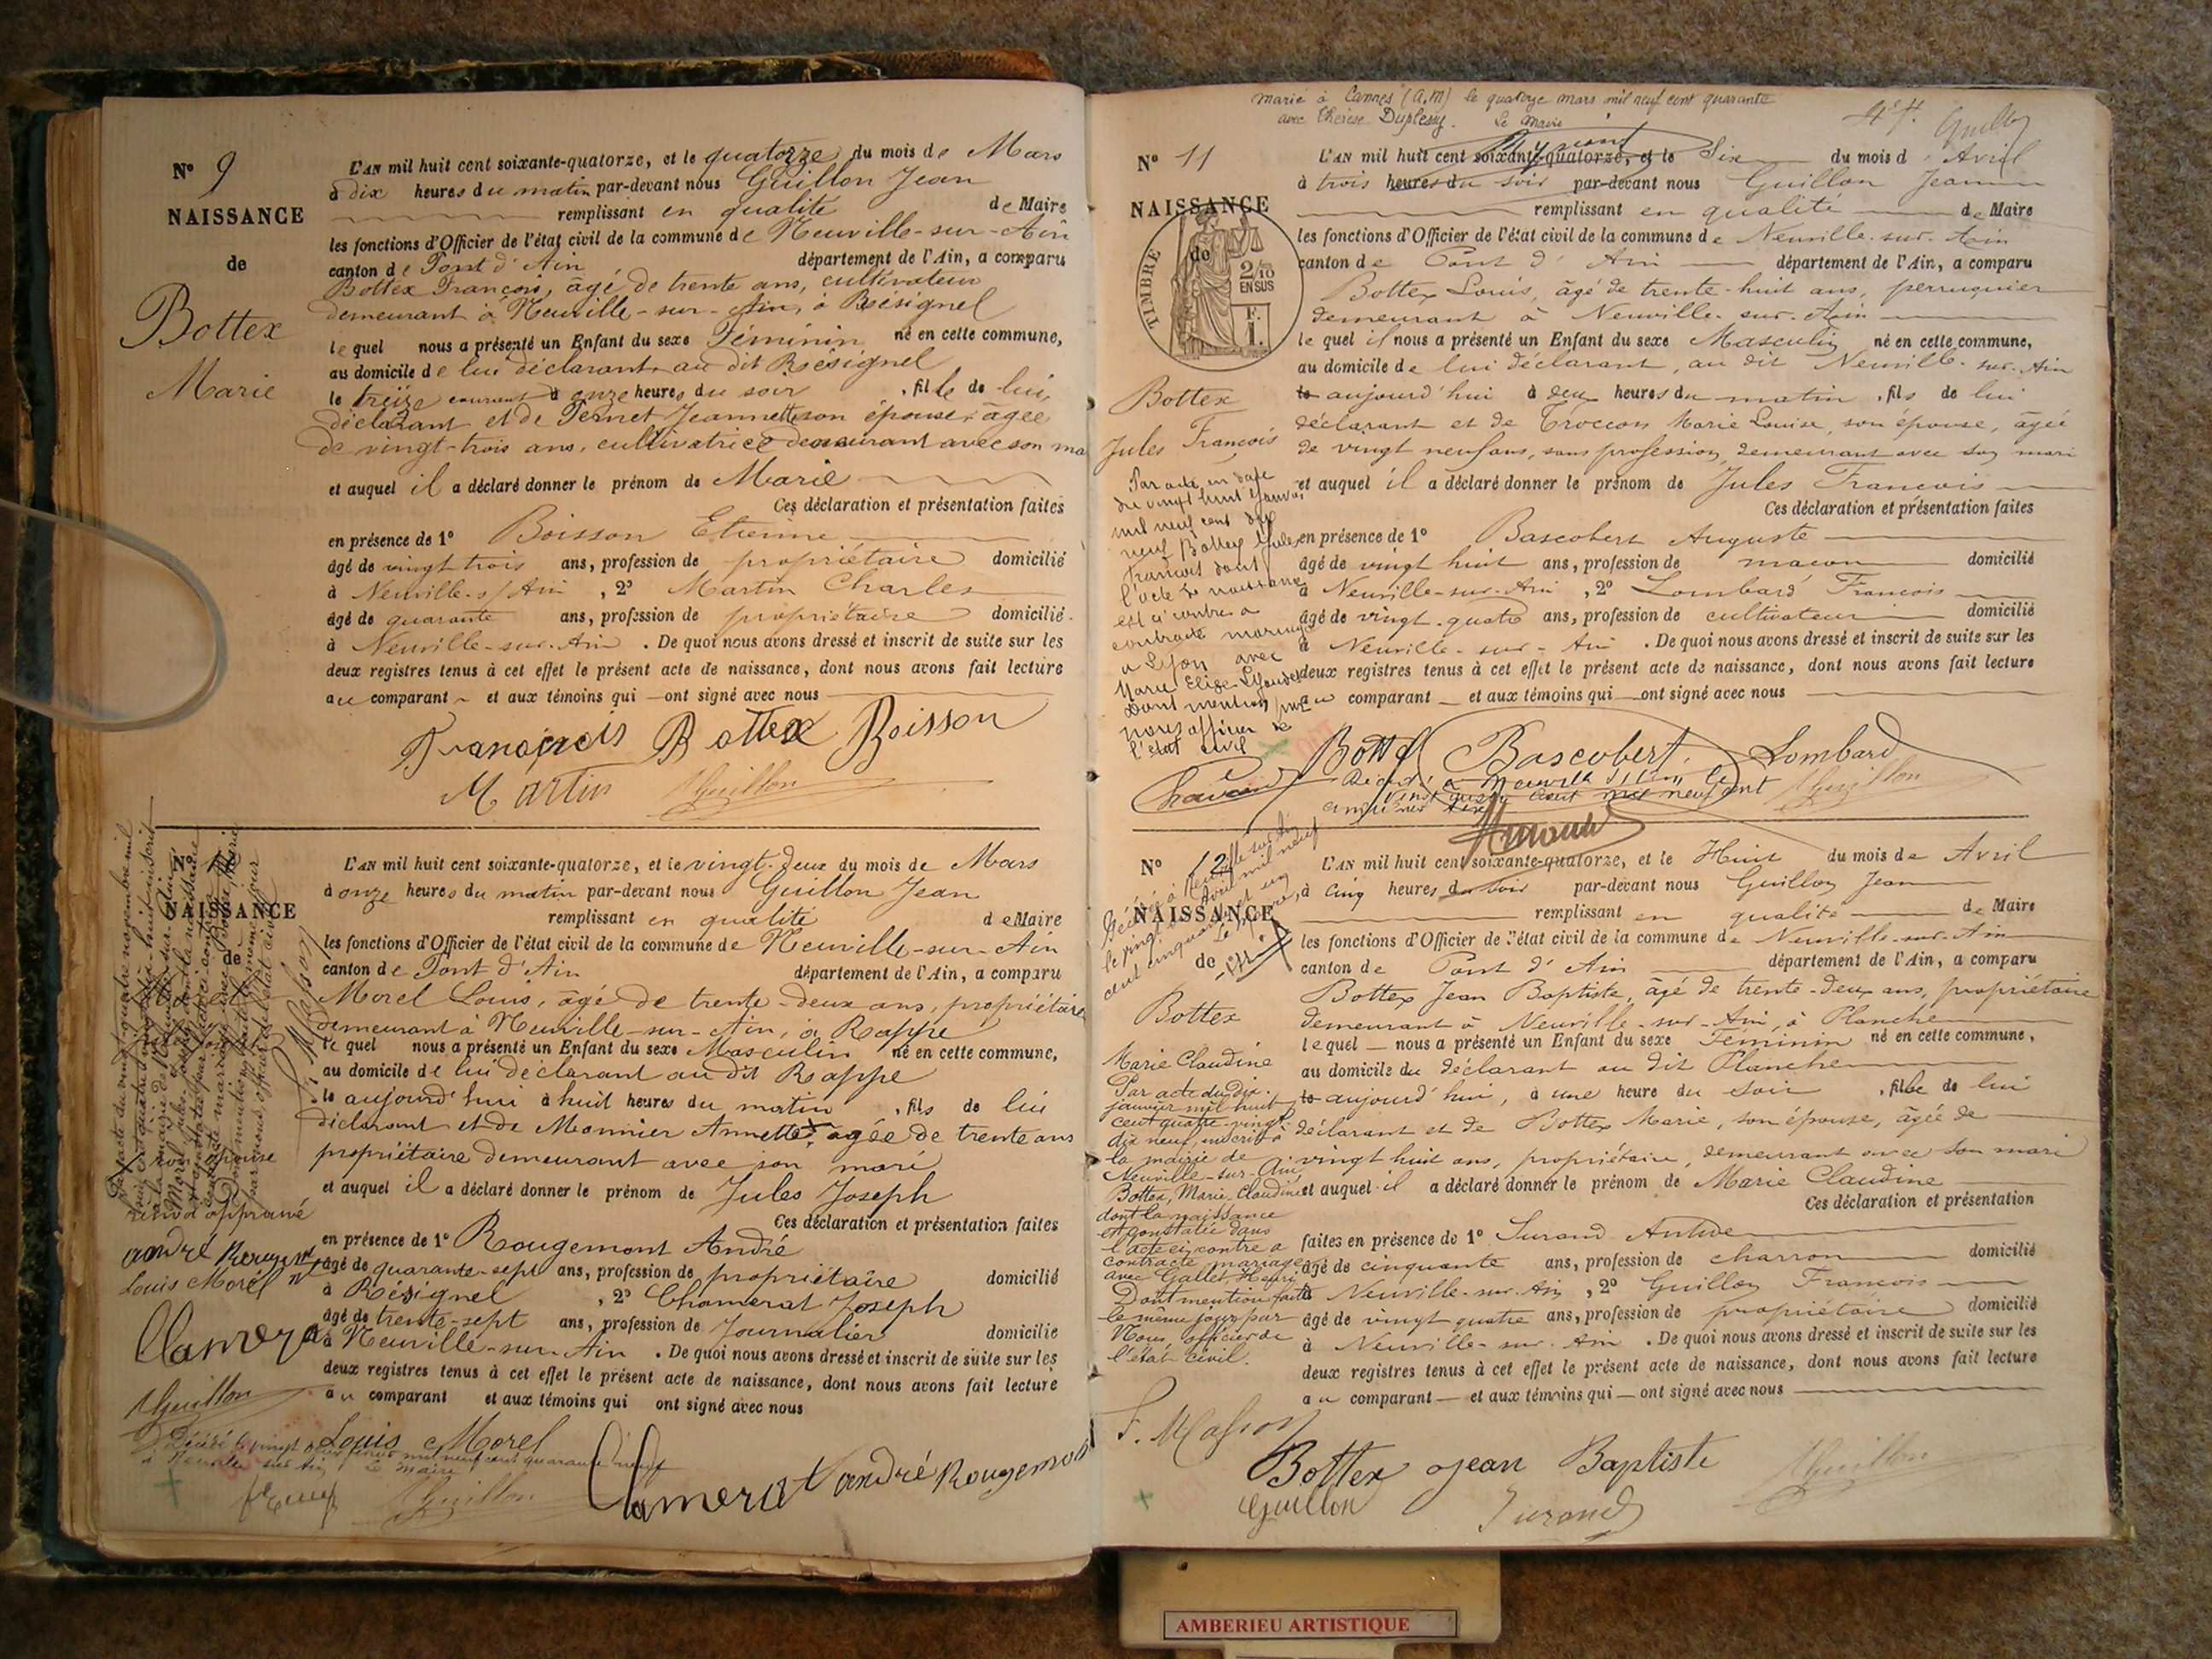 N° 9
NAISSANCE
de
Bottex
Marie
L'AN mil huit cent soixante-quatorze, et le quatorze du mois de Mars
à dix heures du matin par-devant nous Guillon Jean
remplissant en qualité de Maire
les fonctions d'Officier de l'état civil de la commune de Neuville-sur-Ain
canton de Pont d'Ain département de l'Ain, a comparu
Bottex François, âgé de trente ans, cultivateur
demeurant à Neuville-sur-Ain, à Résignel
le quel nous a présenté un Enfant du sexe Féminin né en cette commune,
au domicile de lui déclarant au dit Résignel
le treize courant à onze heures du soir, fille de lui
déclarant et de Pernet Jeannette son épouse, âgée
de vingt-trois ans, cultivatrice demeurant avec son ma
et auquel il a déclaré donner le prénom de Marie
Ces déclaration et présentation faites
en présence de 1° Boisson Etienne
âgé de vingt trois ans, profession de propriétaire domicilié
à Neuville-s/Ain, 2° Martin Charles
âgé de quarante ans, profession de propriétaire domicilié
à Neuville-sur-Ain. De quoi nous avons dressé et inscrit de suite sur les
deux registres tenus à cet effet le présent acte de naissance, dont nous avons fait lecture
au comparant et aux témoins qui ont signé avec nous
François Bottex Boisson
Martin Guillon
N°
NAISSANCE
de
L'AN mil huit cent soixante-quatorze, et le vingt-deux du mois de Mars
à onze heures du matin par-devant nous Guillon Jean
remplissant en qualité de Maire
les fonctions d'Officier de l'état civil de la commune de Neuville-sur-Ain
canton de Pont d'Ain département de l'Ain, a comparu
Morel Louis, âgé de trente-deux ans, propriétaire
demeurant à Neuville-sur-Ain, à Rappe
le quel nous a présenté un Enfant du sexe Masculin né en cette commune,
au domicile de lui déclarant au dit Rappe
le aujourd'hui à huit heures du matin, fils de lui
déclarant et de Monnier Annette, âgée de trente ans
propriétaire demeurant avec son mari
et auquel il a déclaré donner le prénom de Jules Joseph
Ces déclaration et présentation faites
en présence de 1° Rougemont André
âgé de quarante-sept ans, profession de propriétaire domicilié
à Résignel, 2° Chamerat Joseph
âgé de trente-sept ans, profession de Journalier domicilié
à Neuville-sur-Ain. De quoi nous avons dressé et inscrit de suite sur les
deux registres tenus à cet effet le présent acte de naissance, dont nous avons fait lecture
au comparant et aux témoins qui ont signé avec nous
son épouse
renvoi approuvé
andré Rougemt
Louis Morel
Guillon
Louis Morel
Clamerat andré Rougemont
Guillon
marié à Cannes (A.M) le quatorze mars mil neuf cent quarante
avec Thérèse Duplessy. Le Maire
N° 11
NAISSANCE
de
TIMBRE
2/10
EN SUS
F.
1.
Bottex
Jules François
Par acte en date
du vingt huit janvier
mil neuf cent dix
neuf Bottex Jules
François dont
l'acte de naissance
est ci contre a
contracté mariage
à Lyon avec
Marie Elise
Dont mention par
nous officier de
l'état civil
L'AN mil huit cent soixante-quatorze, et le Six du mois d'Avril
à trois heures du soir par-devant nous Guillon Jean
remplissant en qualité de Maire
les fonctions d'Officier de l'état civil de la commune de Neuville-sur-Ain
canton de Pont d'Ain département de l'Ain, a comparu
Bottex Louis, âgé de trente-huit ans, perruquier
demeurant à Neuville-sur-Ain
le quel il nous a présenté un Enfant du sexe Masculin né en cette commune,
au domicile de lui déclarant, au dit Neuville-sur-Ain
le aujourd'hui à deux heures du matin, fils de lui
déclarant et de Troccon Marie Louise, son épouse, âgée
de vingt neuf ans, sans profession, demeurant avec son mari
et auquel il a déclaré donner le prénom de Jules François
Ces déclaration et présentation faites
en présence de 1° Bascobert Auguste
âgé de vingt huit ans, profession de maçon domicilié
à Neuville-sur-Ain, 2° Lombard François
âgé de vingt-quatre ans, profession de cultivateur domicilié
à Neuville-sur-Ain. De quoi nous avons dressé et inscrit de suite sur les
deux registres tenus à cet effet le présent acte de naissance, dont nous avons fait lecture
au comparant et aux témoins qui ont signé avec nous
Bottex Bascobert Lombard
Guillon
N° 12
NAISSANCE
de
Bottex
Marie Claudine
Par acte du dix
janvier mil huit
cent quatre-vingt
dix neuf, inscrit à
la mairie de
Neuville-sur-Ain
Bottex, Marie, Claudine
dont la naissance
est constatée dans
l'acte ci, contre a
contracté mariage
avec Gallet Henri
Dont mention faite
le même jour par
Nous, officier de
l'état civil.
F. Masson
L'AN mil huit cent soixante-quatorze, et le Huit du mois de Avril
à cinq heures du soir par-devant nous Guillon Jean
remplissant en qualité de Maire
les fonctions d'Officier de l'état civil de la commune de Neuville-sur-Ain
canton de Pont d'Ain département de l'Ain, a comparu
Bottex Jean Baptiste, âgé de trente-deux ans, propriétaire
demeurant à Neuville-sur-Ain, à Planche
lequel nous a présenté un Enfant du sexe Féminin né en cette commune,
au domicile du déclarant au dit Planche
le aujourd'hui, à une heure du soir, fille de lui
déclarant et de Bottex Marie, son épouse, âgée de
vingt huit ans, propriétaire, demeurant avec son mari
et auquel il a déclaré donner le prénom de Marie Claudine
Ces déclaration et présentation
faites en présence de 1° Durand
âgé de cinquante ans, profession de charron domicilié
à Neuville-sur-Ain, 2° Guillon François
âgé de vingt quatre ans, profession de propriétaire domicilié
à Neuville-sur-Ain. De quoi nous avons dressé et inscrit de suite sur les
deux registres tenus à cet effet le présent acte de naissance, dont nous avons fait lecture
au comparant et aux témoins qui ont signé avec nous
Bottex Jean Baptiste Guillon
Guillon Durand
AMBERIEU ARTISTIQUE